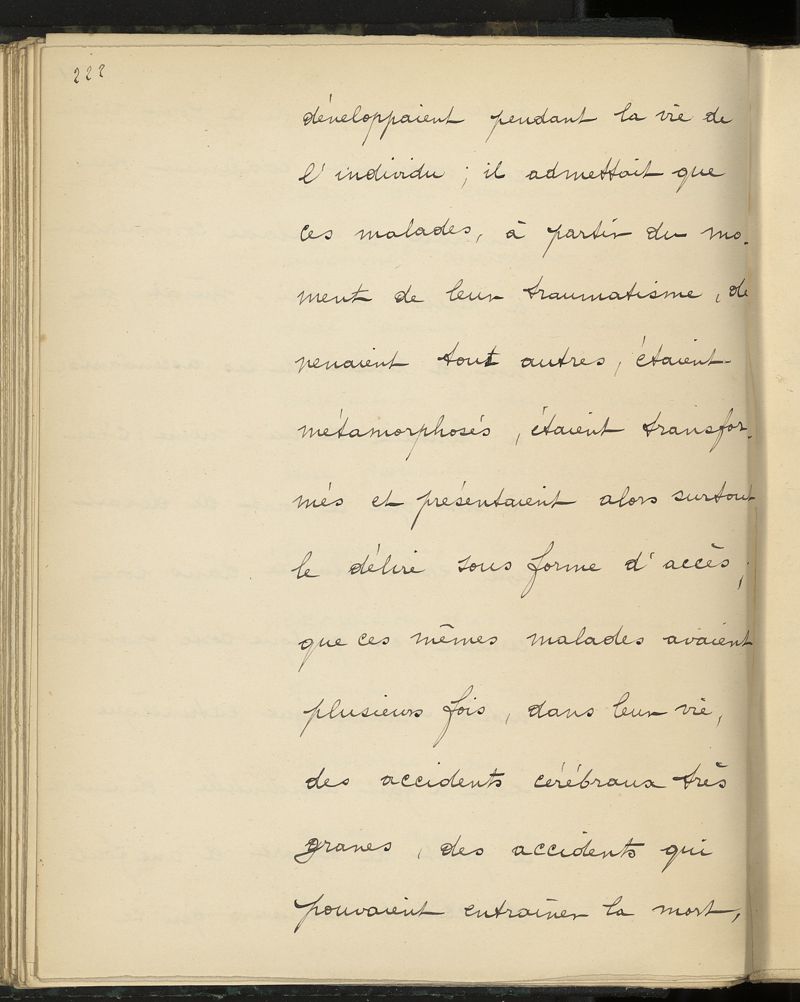 222
développaient pendant la vie de
l'individu ; il admettait que
ces malades, à partir du mo-
ment de leur traumatisme, de
venaient tout autres, étaient
métamorphosés, étaient transfor-
més et présentaient alors surtout
le délire sous forme d'accès ;
que ces mêmes malades avaient
plusieurs fois, dans leur vie,
des accidents cérébraux très
graves, des accidents qui
pouvaient entraîner la mort,